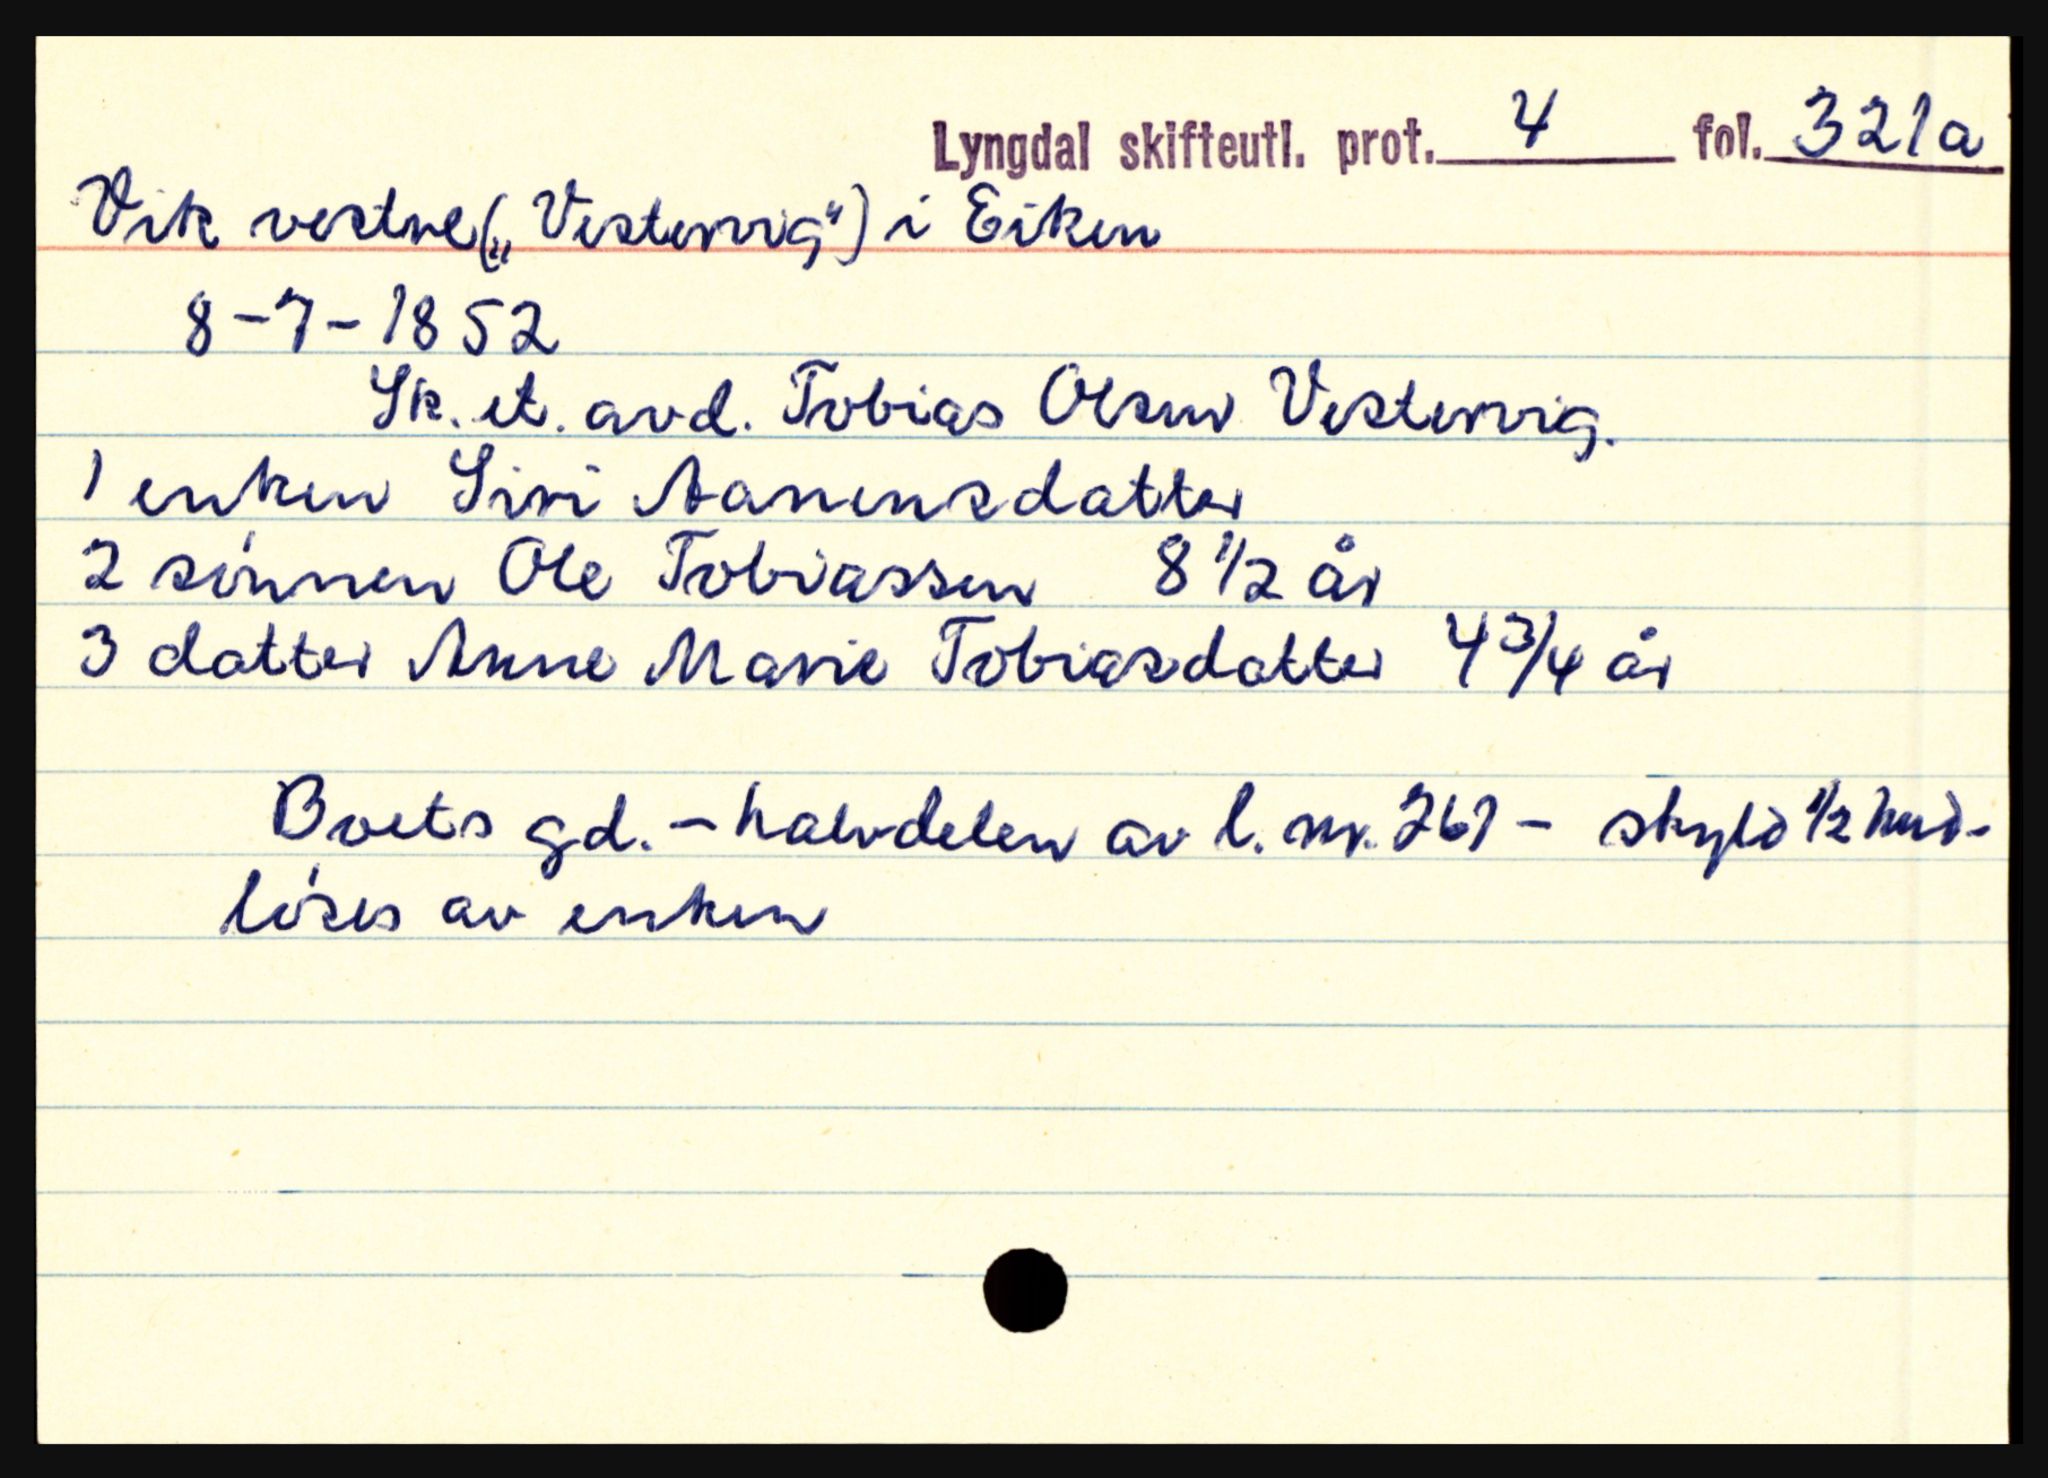 Lyngdal skifteutl. prot. 4 fol. 321a
Vik vestre („Vestervig“) i Eiken
8-7-1852
Sk. et. avd. Tobias Olsen Vestervig.
1 enken Siri Aanensdatter
2 sónnen Ole Tobiassen 8 1/2 år
3 datter Anne Marie Tobiasdatter 4 3/4 år
Boets gd. - halvdelen av l. nr. 261 - skyld 1/2 hud-
lóses av enken